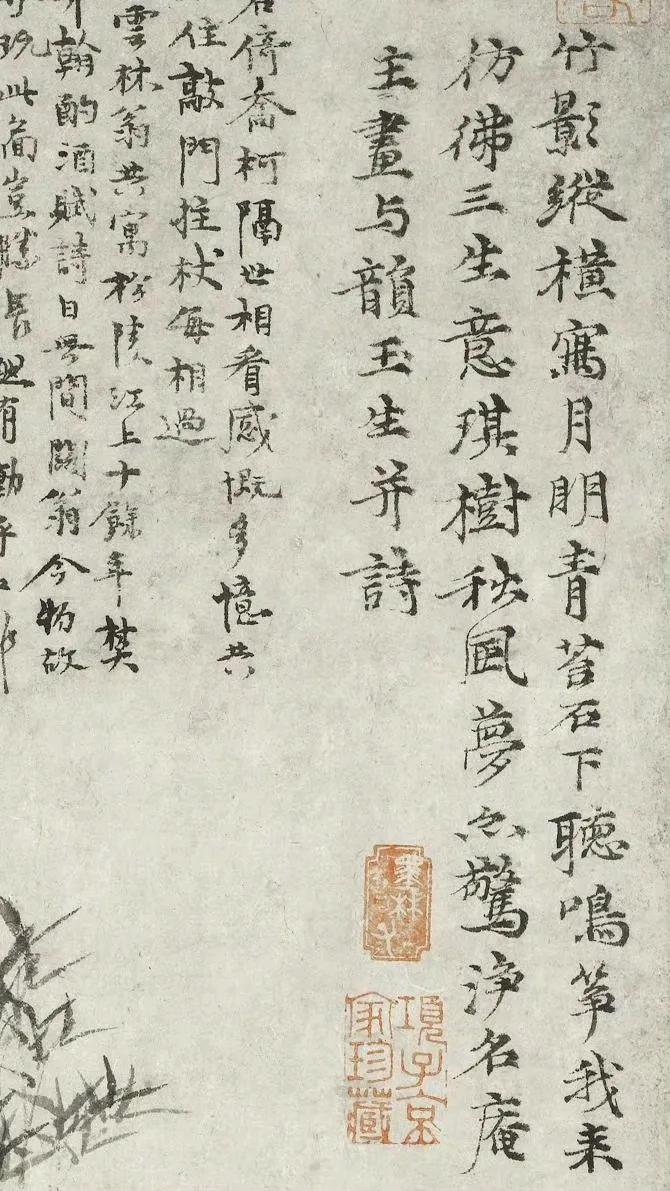 竹影縱橫寫月明青苔石下聽鳴箏我来
彷彿三生意琪樹秋風夢亦驚淨名庵
主畫与韻玉生并詩
倚喬柯隔世相看感慨多憶共
住敲門拄杖每相過
雲林翁共寓松陵江上十餘年樊
翰酌酒賦詩日無間闊翁今物故
玩此啚豈勝長
項子京
家珍藏